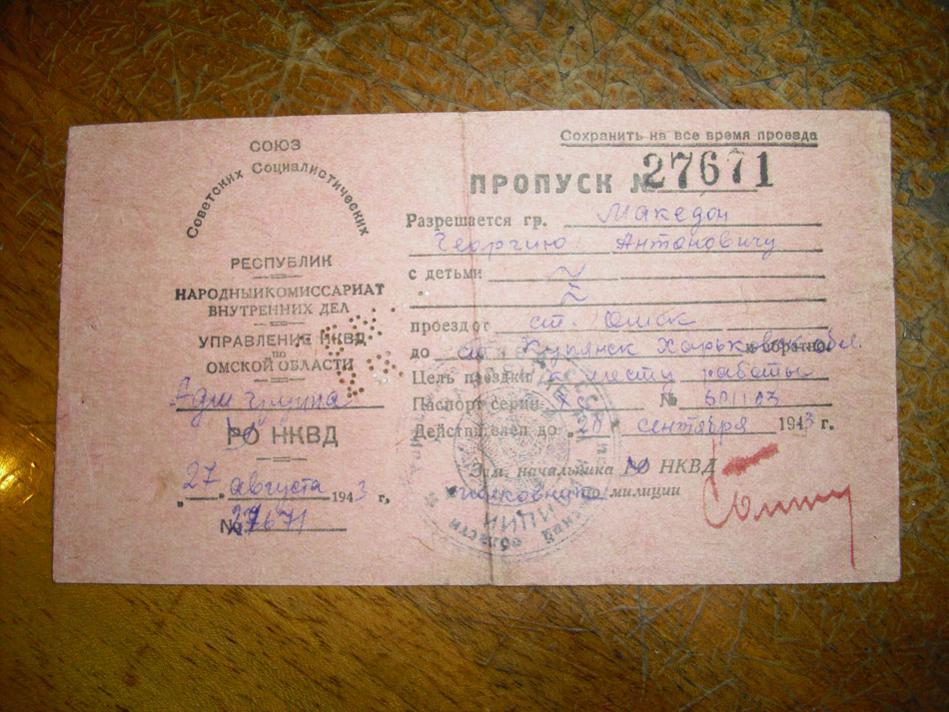 СОЮЗ
Советских Социалистических
РЕСПУБЛИК
НАРОДНЫЙ КОМИССАРИАТ
ВНУТРЕННИХ ДЕЛ
УПРАВЛЕНИЕ НКВД
по
ОМСКОЙ ОБЛАСТИ
Адм группа
РО НКВД
"27" августа 1943 г,
№ 27671
Сохранить на все время проезда
ПРОПУСК № 27671
Разрешается гр. Македон
Георгию Антоновичу
с детьми
проезд от ст. Омск
до ст. Купянск Харьковской обл.
и обратно
Цель поездки к месту работы
Паспорт серии № 601103
Действителен до "20" сентября 1943 г.
Зам. начальника РО НКВД
милиции